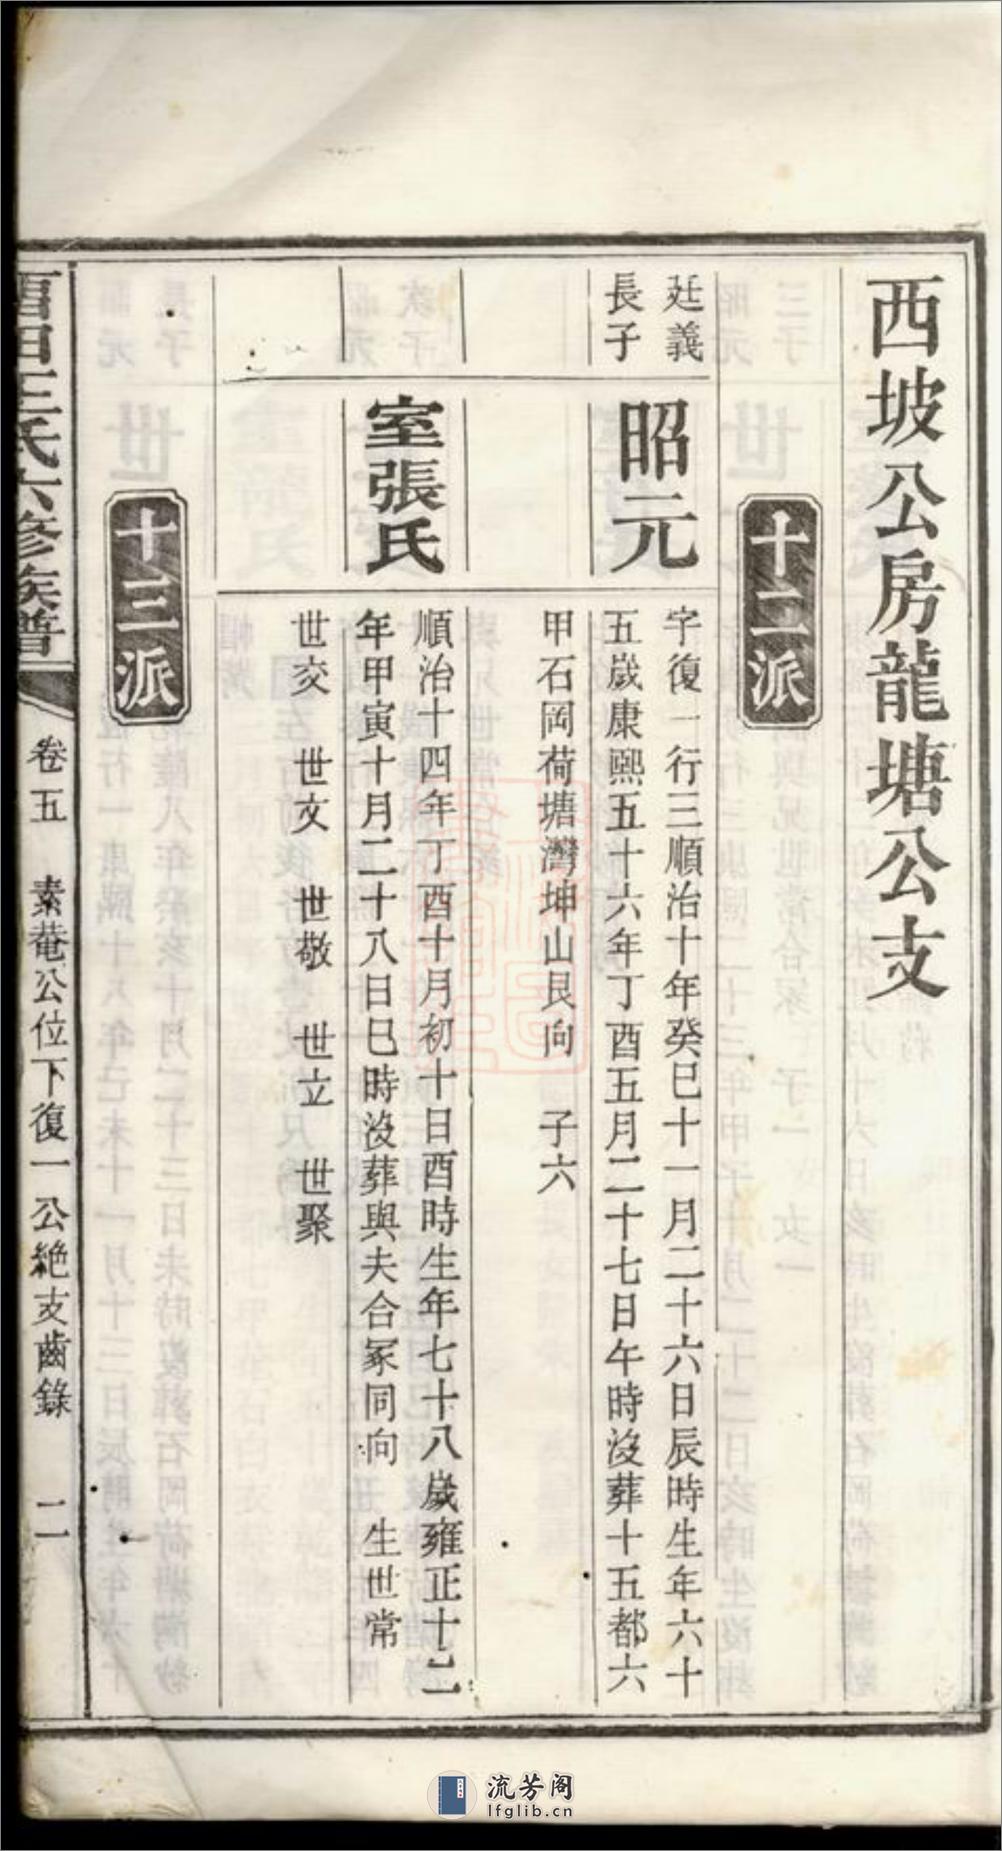 西坡公房龍塘公支
十二派
廷義
長子
昭元
字復一行三順治十年癸巳十一月二十六日辰時生年六十
五歲康熙五十六年丁酉五月二十七日午時沒葬十五都六
甲石岡荷塘灣坤山艮向 子六
室張氏
順治十四年丁酉十月初十日酉時生年七十八歲雍正十二
年甲寅十月二十八日巳時沒葬與夫合冢同向 生世常
世交 世文 世敬 世立 世聚
十三派
王氏六修族譜
卷五 素菴公位下復一公絶支齒錄 二
流芳阁
lfglib.cn